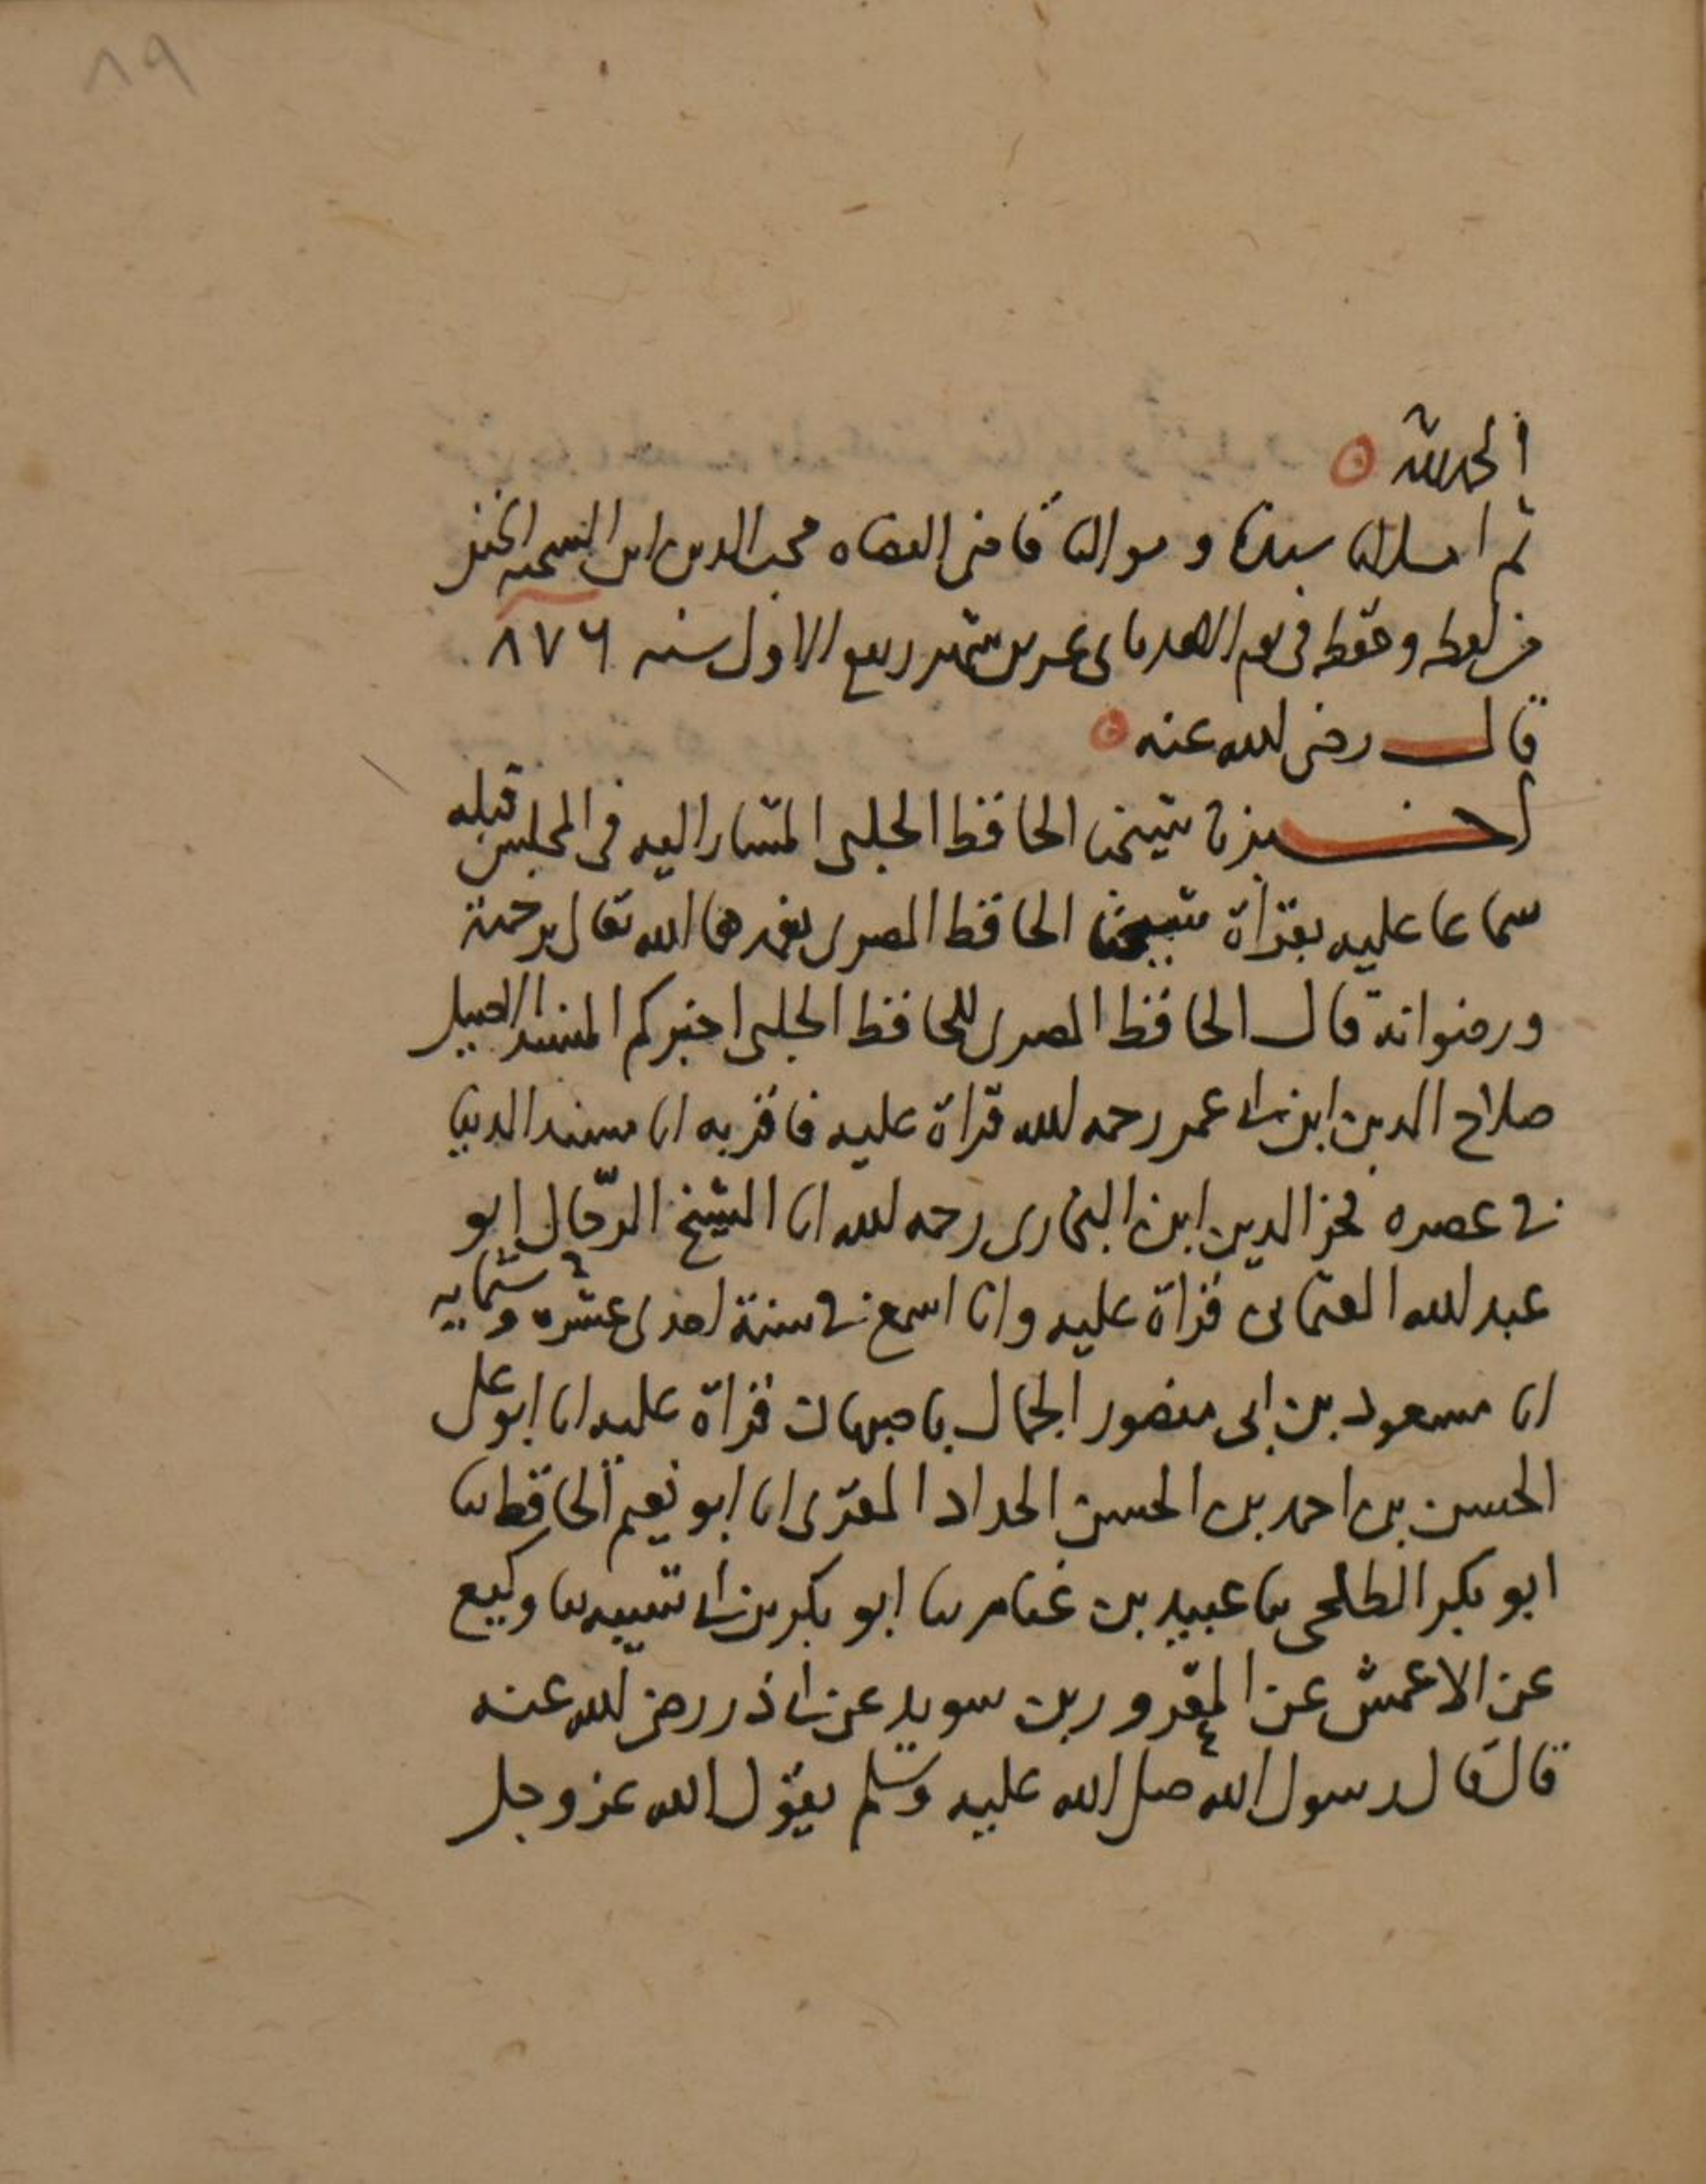 ٨٩
الحمد لله
ثم املانا سيدنا ومولانا قاضى القضاه محب الدين ابن الشحنه الحنفى
من لفظه وحفظه فى يوم الاحد ثانى عشرين شهر ربيع الاول سنه ٨٧٦
قال رضى الله عنه
اخبرنا شيخنا الحافظ الحلبى المشار اليه فى المجلس قبله
سماعا عليه بقراة شيخنا الحافظ المصرى تغمدهما الله تعالى برحمته
ورضوانه قال الحافظ المصرى للحافظ الحلبى اخبركم المسند الاصيل
صلاح الدين ابن ابى عمر رحمه الله قراة عليه فاقر به انا مسند الدنيا
فى عصره فخر الدين ابن البخارى رحمه الله انا الشيخ الرحال ابو
عبد الله العثمانى قراة عليه وانا اسمع فى سنة احدى عشره وستمايه
انا مسعود بن ابى منصور الجمال باصبهان قراة عليه انا ابو على
الحسن بن احمد بن الحسن الحداد المقرى انا ابو نعيم الحافظ ثنا
ابو بكر الطلحى ثنا عبيد بن غنام ثنا ابو بكر بن ابى شيبه ثنا وكيع
عن الاعمش عن المعرور بن سويد عن ابى ذر رضى الله عنه
قال قال رسول الله صلى الله عليه وسلم يقول الله عز وجل